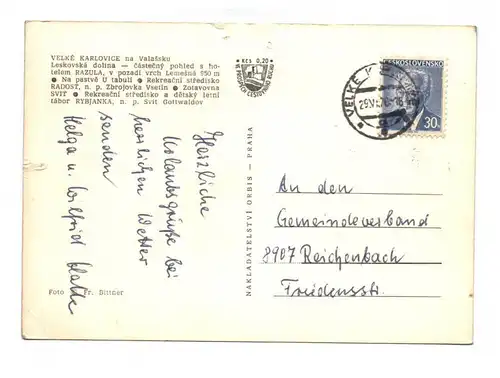 VELKÉ KARLOVICE na Valašsku
Leskovská dolina — částečný pohled s ho-
telem RAZULA, v pozadí vrch Lemešná 950 m
● Na pastvě U tabulí ● Rekreační středisko
RADOST, n. p. Zbrojovka Vsetín ● Zotavovna
SVIT ● Rekreační středisko a dětský letní
tábor RYBJANKA, n. p. Svit Gottwaldov
Kčs 0,20
ČESKOSLOVENSKO
30
VELKÉ
Herzliche
Urlaubsgrüße bei
herrlichen Wetter
senden
Helga u. Wilfried
Foto Fr. Dittner
NAKLADATELSTVÍ ORBIS — PRAHA
An den
Gemeindeverband
8907 Reichenbach
Friedensstr.